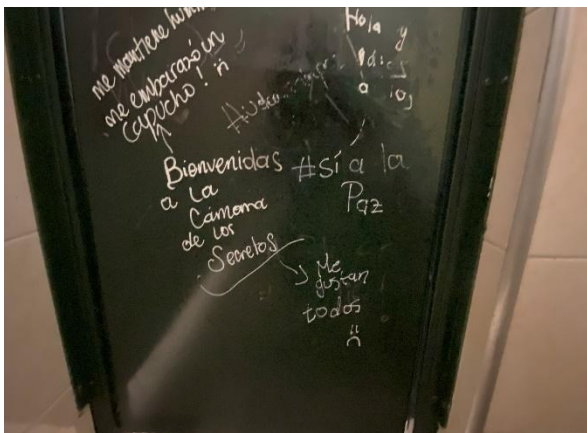 me mantiene
me embarazó un
capucho! :(
Hola y
Bienvenidas
a la
Cámara
de los
Secretos
#Sí a la
Paz
Me
gustan
todos
:(